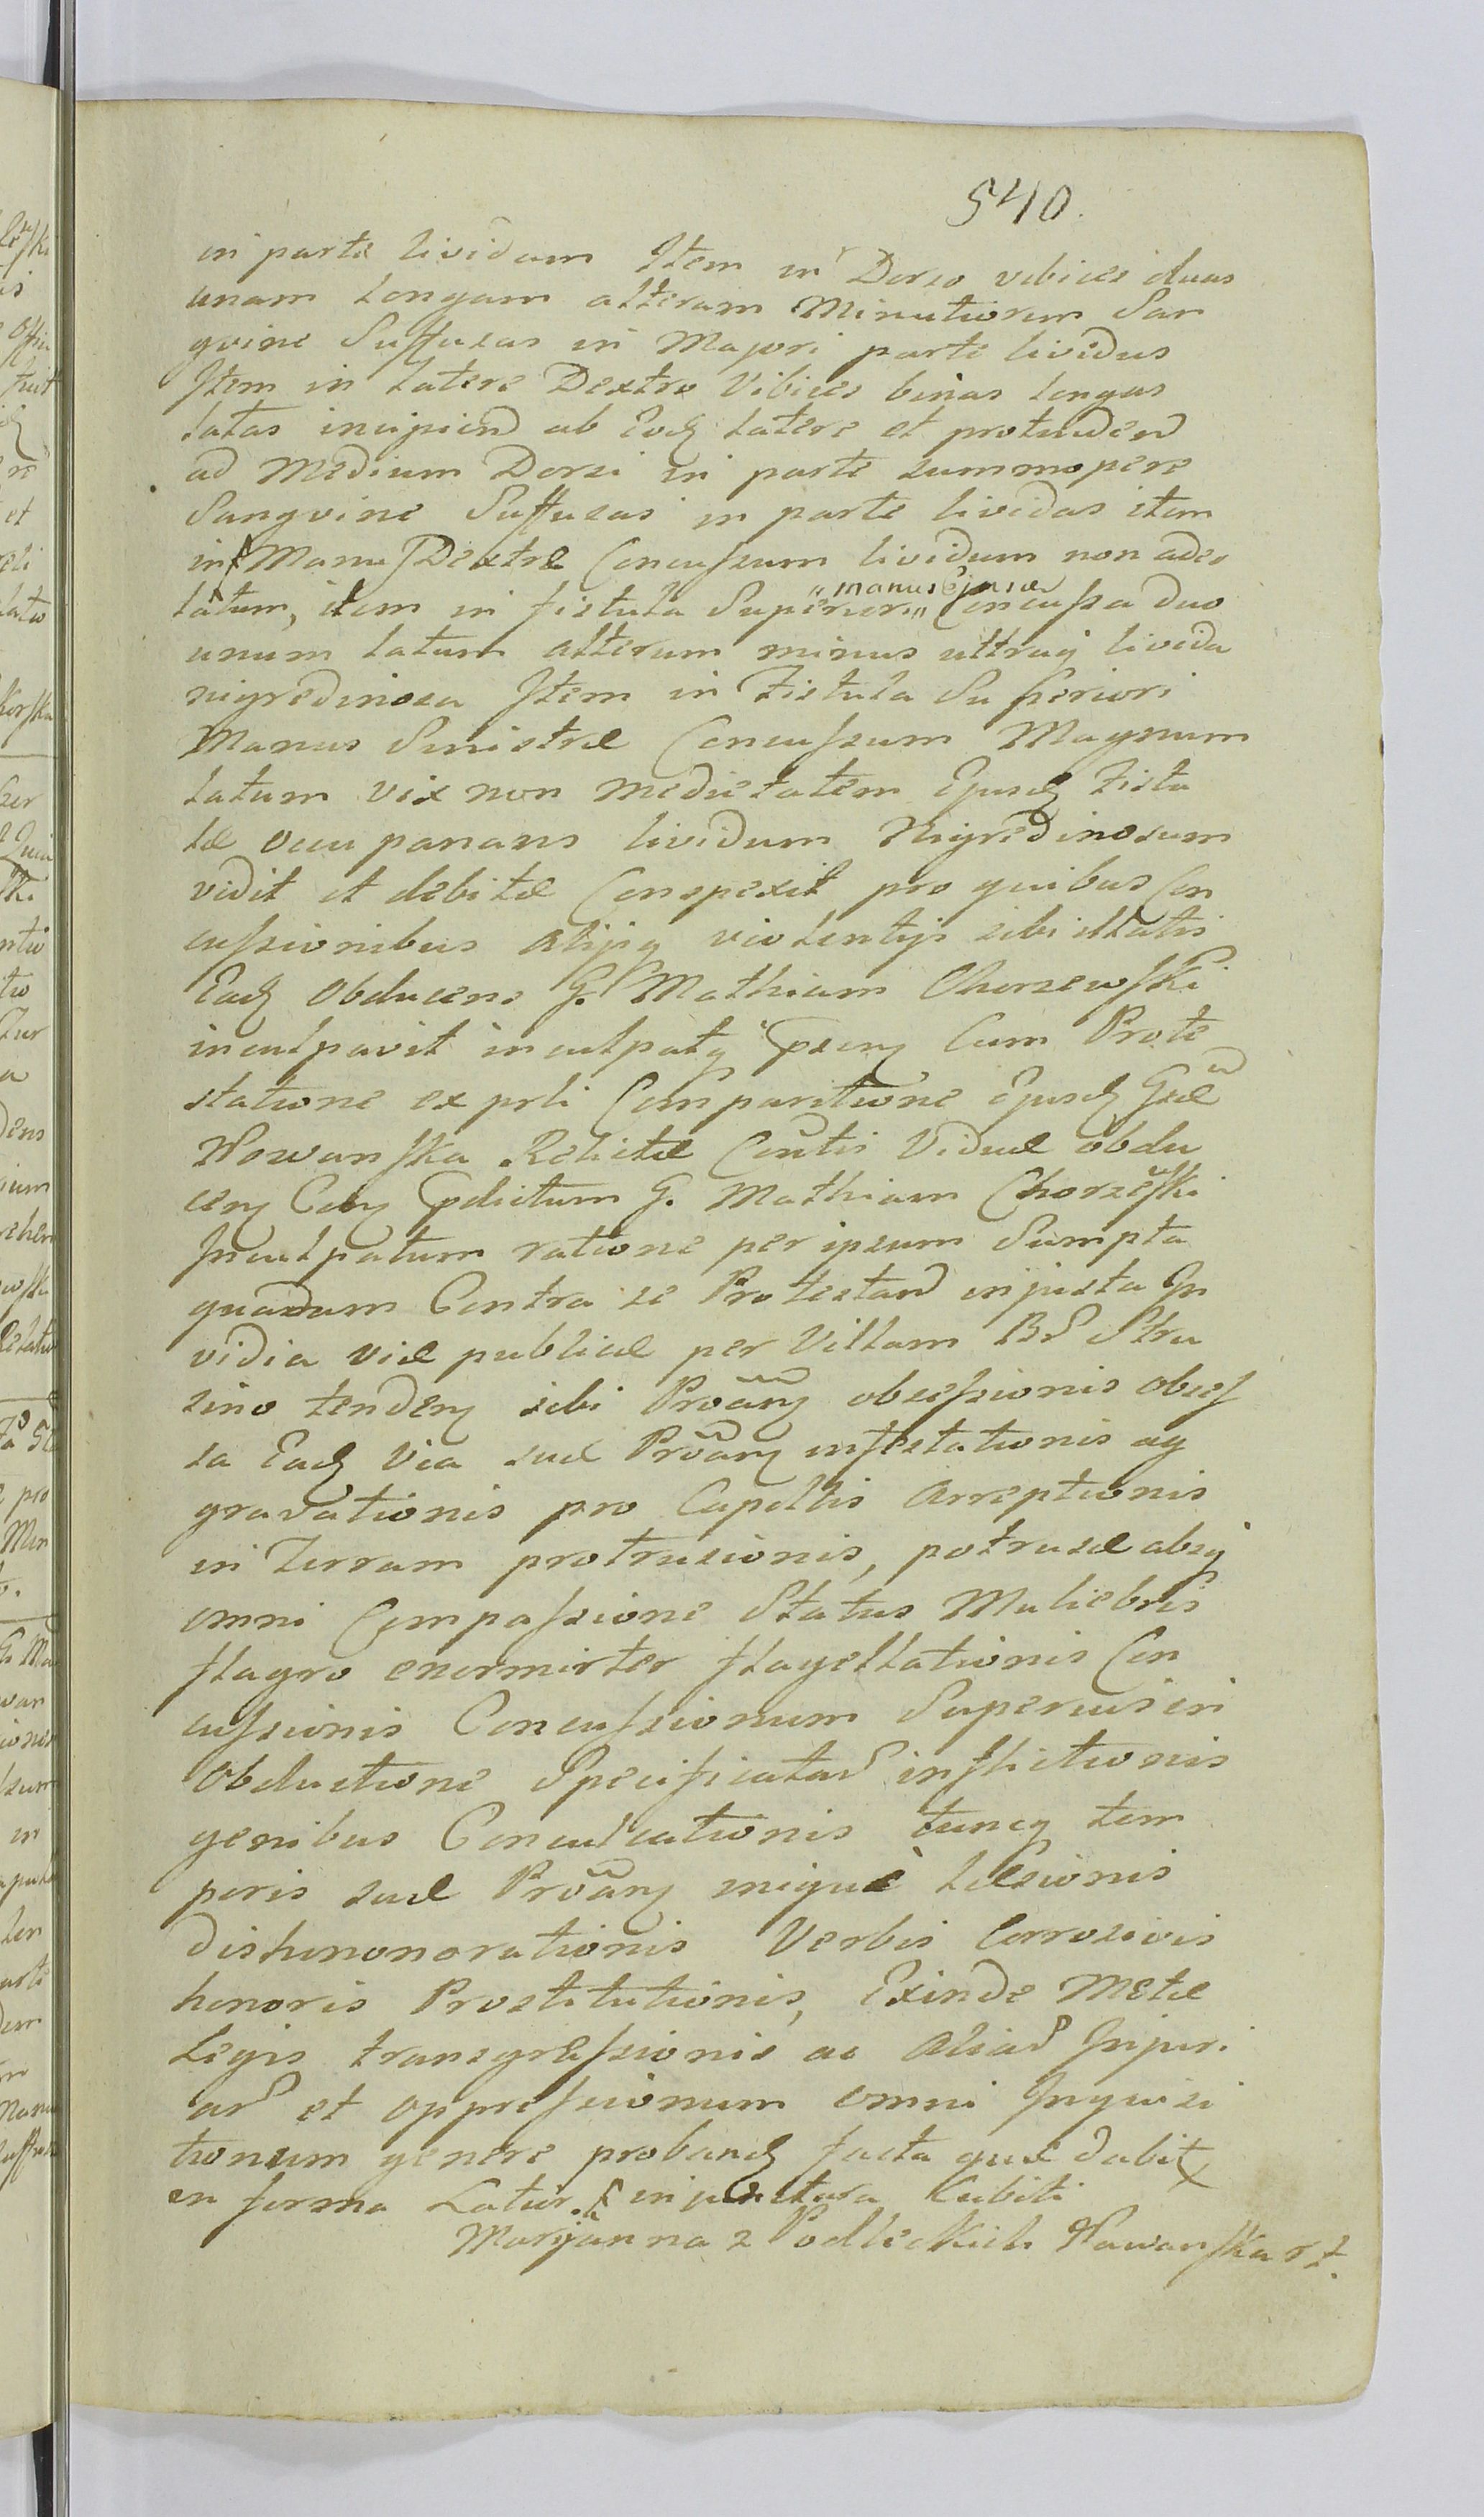 540.
in parte lividam Item in Dorso vibices duas
unam longam alteram Minutiorem San
gvine Suffusas in Majori parte lividas
Item in latere Dextro Vibices binas longas
latas incipiend ab Eodq latere et protendend
ad Medium Dorsi in parte summopere
Sangvine Suffusas in parte lividas item
in Manu Dextræ Concussum lividum non adeo
latum, item in fistula Superiori „manus Ejusd„ Concussa duo
unum latum alterum minus utraq livida
nigredinosa Item in Fistula Superiori
Manus Sinistræ Concussum Magnum
latum vix non medietatem Ejusdq Fistu
læ occupanans lividum Nigredinosum
vidit et debite Conspexit pro quibus Con
cussionibus alijsq violentijs sibi illatis
Eadq Obducens G. Mathiam Chorzewski
inculpavit inculpatq pseng Cum Prote
statione ex prti Comparitione Ejusdq Gsæ
Nowanska Relictæ Contis Viduæ obdu
ceng Cong pdictum G. Mathiam Chorzĕski
Inculpatum ratione per ipsum Sumpta
quadam Contra se Protestand injusta In
vidia viæ publicæ per Villam BS Stru
sino tendeng sibi Proanq obsessionis obses
sa Eadq Via suæ Proanq infestationis ag
gravationis pro Capillis Arreptionis
in Terram protrusionis, potrusæ absq
omni Compassione Status Muliebris
flagro enormirter flagellationis Con
cussionis Concussionum Superius in
Obductione Specificatar inflictionis
genibus Conculcationis tuncq tem
poris suæ Proanq inique læsionis
dishononorationis Verbis Corrosivis
honoris Prostitutionis, Exinde Metæ
Legis transgressionis ac aliar Injuri
ar et oppressionum omni Inquisi
tionum genere probandq facta quæ dabit
in forma Latius in junctura Cubiti
Maryanna z Podleckich Nawanska rz.